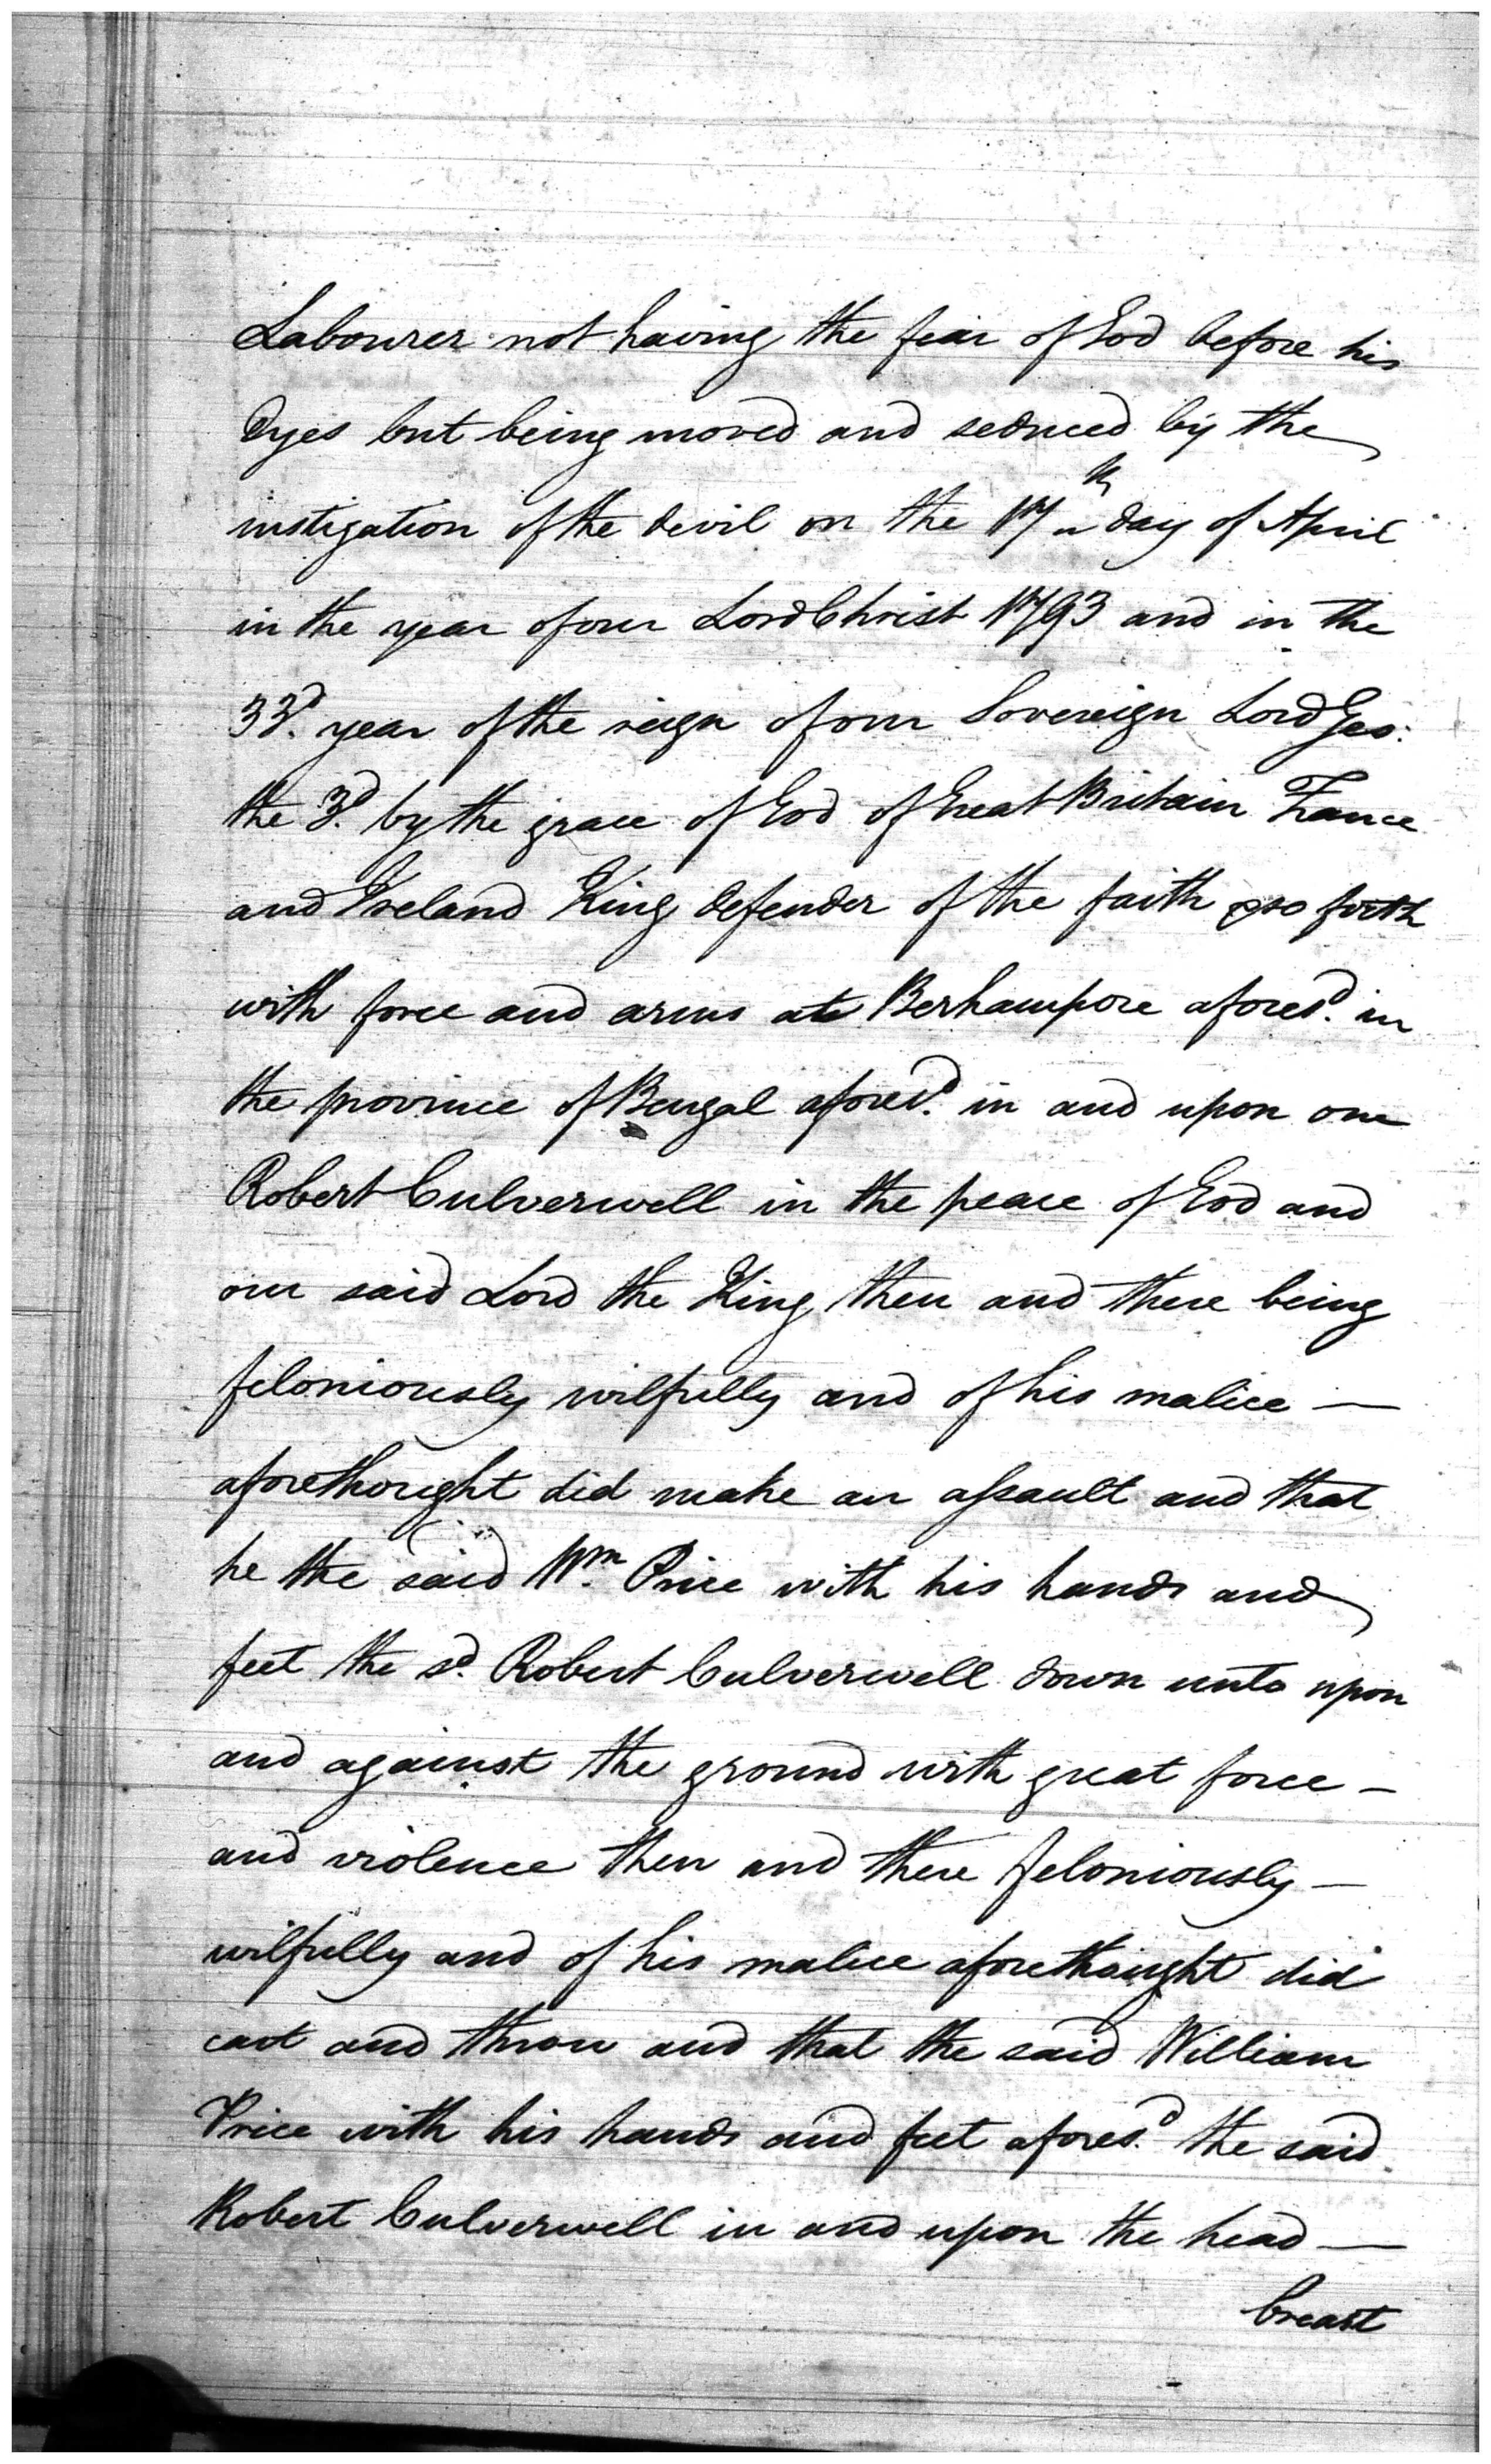 Labourer not having the fear of God before his
Eyes but being moved and seduced by the
instigation of the devil on the 17th day of April
in the year of our Lord Christ 1793 and in the
33d. year of the reign of our Sovereign Lord Geo:
the 3d. by the grace of God of Great Britain France
and Ireland King defender of the faith & so forth
with force and arms at Berhampore aforesd. in
the province of Bengal aforesd. in and upon one
Robert Culverwell in the peace of God and
our said Lord the King then and there being
feloniously wilfully and of his malice —
aforethought did make an assault and that
he the said Wm. Price with his hands and
feet the sd. Robert Culverwell down unto upon
and against the ground with great force —
and violence then and there feloniously —
wilfully and of his malice aforethought did
cast and throw and that the said William
Price with his hands and feet aforesd. the said
Robert Culverwell in and upon the head —
breast